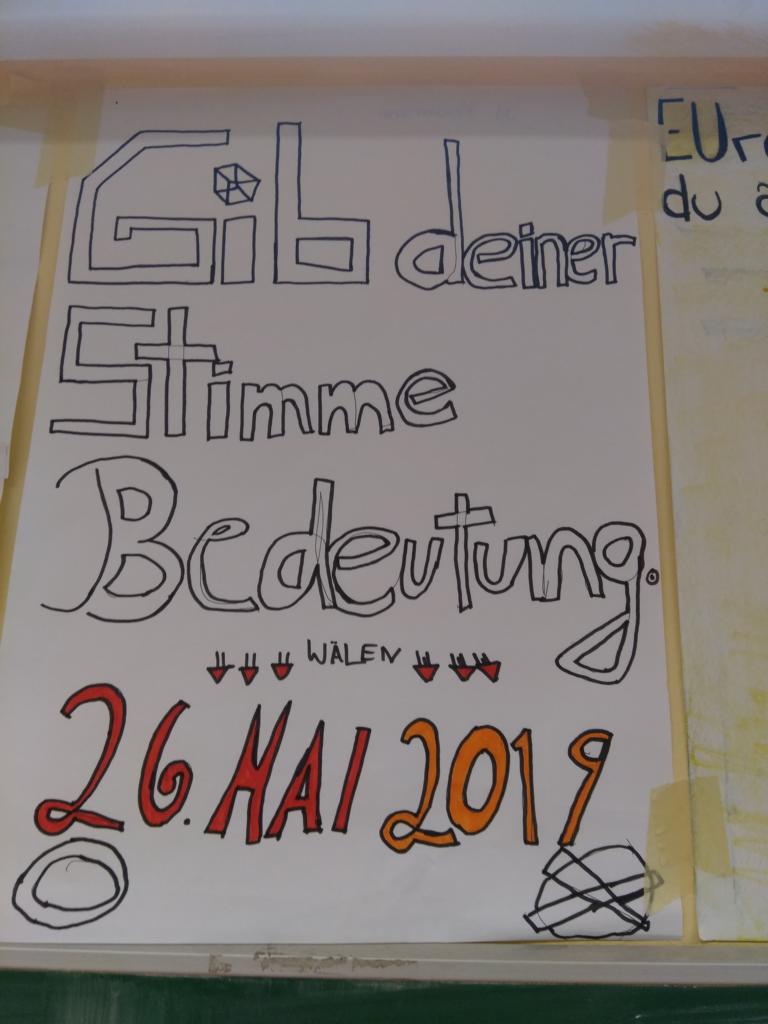 Gib deiner
Stimme
Bedeutung.
WÄLEN
26. MAI 2019
du